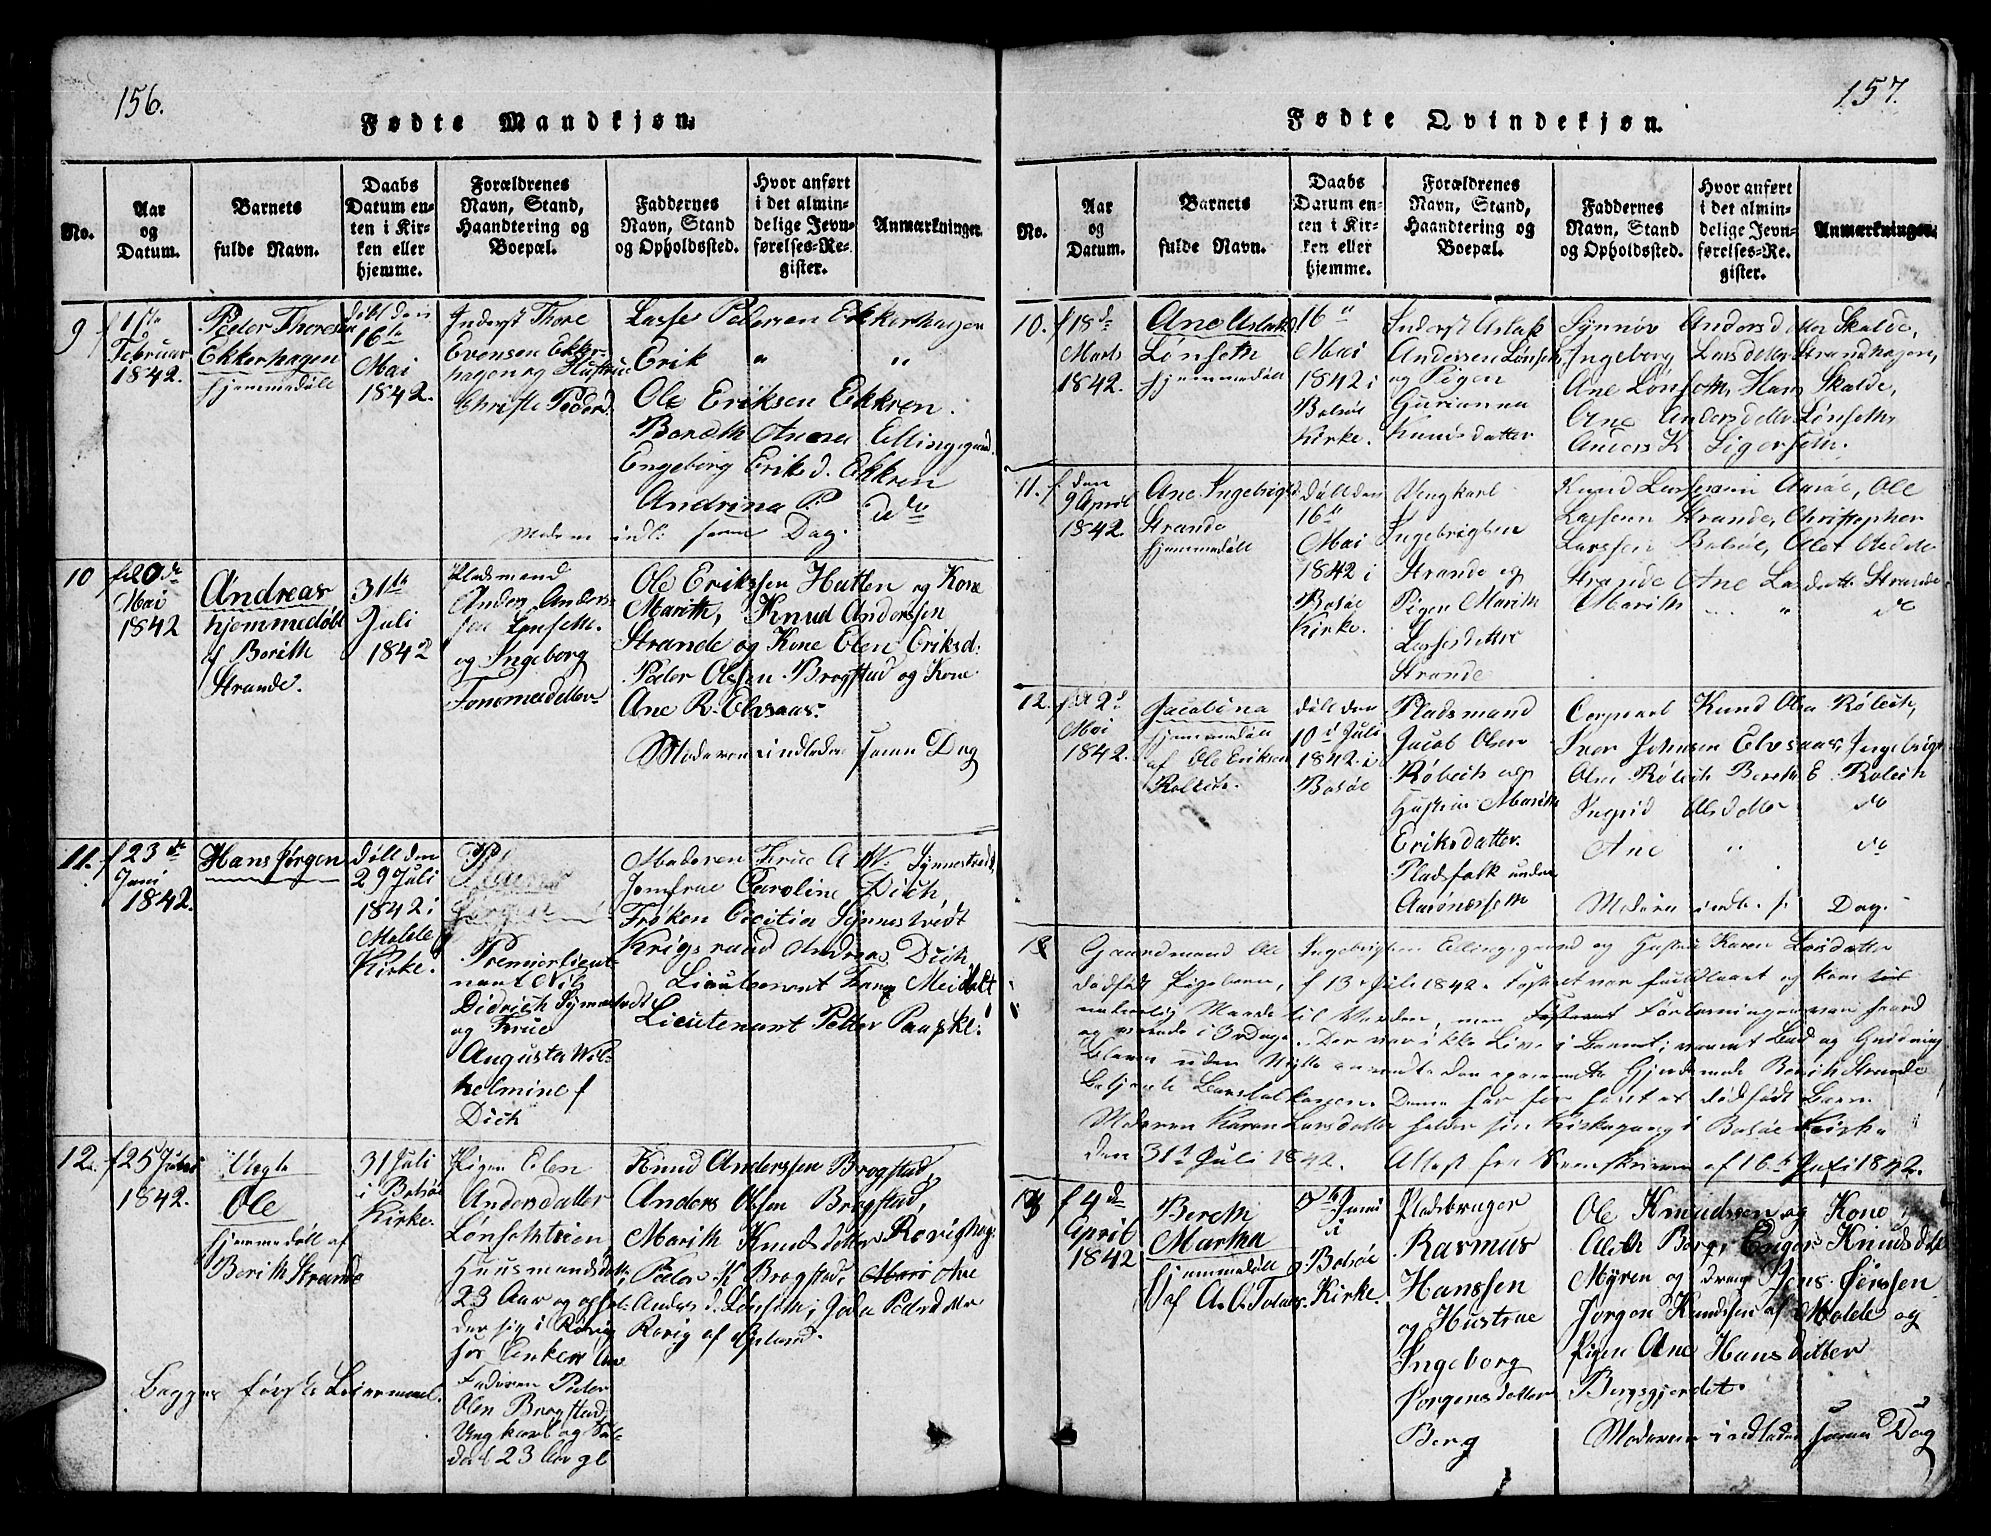 156.
Fødte Mandkjøn.
No.
Aar
og
Datum.
Barnets
fulde Navn.
Daabs
Datum en-
ten i Kir-
ken eller
hjemme.
Forældrenes
Navn, Stand,
Haandtering og
Boepæl.
Faddernes
Navn, Stand
og Opholdssted.
Hvor anført
i det almin-
delige Jevn-
førelses-Re-
gister.
Anmærkninger.
9
f 1ste
Februar
1842.
Peder Thoresen
Ekkerhagen
hjemmedøbt
døbt den
16te
Mai
1842.
Inderst Thore
Evensen Ekker-
hagen og Hustrue
Christi Peders
Lasse Pedersen Ekkerhagen
Erik " "
Ole Eriksen Ekkren.
Bereth Anna Ellingsgaard.
Engeborg Eriks d. Ekkren
Andrina P. do
Moderen indl: samme Dag.
10
f d 20de
Mai
1842
Andreas
hjemmedøbt
af Berith
Strande.
31te
Juli
1842
Pladsmand
Anders Anders-
sen Lønseth.
og Ingeborg
Ole Erikssen Hatten og Kone
Marith, Knud Anderssen
Strande og Kone Elen Eriksd:
Peder Olssen Brogstad og Kone
Ane R. Elvsaas.
Moderen indleder samme Dag
11.
f 23de
Juni
1842.
Hans Jørgen
døbt den
29 Juli
1842 i
Molde
Kirke.
Premierlieut-
nant Nils
Didrich Synnestvedt
og Frue
Augusta Wil-
helmine f
Dich
Moderen Frue A W. Synnestvedt,
Jomfrue Caroline Dich,
Frøken Cecilia Synnestvedt
Krigsraad Andreas Dich
Lieutenant Frang Meidell
Lieutenant Petter Paaske.
12.
f 25 Juni
1842.
Uægte
Ole
hjemmedøbt af
Berith Strande
31 Juli
i Bolsøe
Kirke.
Pigen Elen
Andersdatter
Lønsethtrøen
Huusmandsdatter
23 Aar og ophol-
der sig i Rørvig
hos Enken
Faderen Peder
Olsen Brogstad
Ungkarl og Sol-
dat 23 Aar gl
Knud Anderssen Brogstad,
Anders Olsen Brogstad,
Marith Knudsdatter Rørvighag.
Peder K Brogstad, Ane
Anders d. Lønseth,
Begges første Leiermaal.
157.
Fødte Qvindekjøn.
No.
Aar
og
Datum.
Barnets
fulde Navn.
Daabs
Datum en-
ten i Kir-
ken eller
hjemme.
Forældrenes
Navn, Stand,
Haandtering og
Boepæl.
Faddernes
Navn, Stand
og Opholdssted.
Hvor anført
i det almin-
delige Jevn-
førelses-Re-
gister.
Anmærkninger.
10.
f 18de
Marts
1842.
Ane Aslaksd
Lønseth
hjemmedøbt
16de
Mai
1842 i
Bolsøe
Kirke.
Inderst Aslak
Anderssen Lønseth
og Pigen
Gurianna
Knudsdatter
Synnøv Andersdatter Skalde,
Ingeborg Larsdatter Strandhagen,
Ane Lønseth, Hans Skalde,
Ane Andersdatter Lønseth,
Anders K Sigerseth.
11.
f den
9 April
1842
Ane Ingebrigtsd
Strande
hjemmedøbt
Døbt den
16de
Mai
1842 i
Bolsøe
Kirke.
Ungkarl
Ingebrigt
Strande og
Pigen Marith
Lassesdatter
Strande
Knud Larssen Aarøe, Ole
Larssen Strande, Christopher
Larssen Bolsøe,
Strande Ane Larsdatter Strande
Marith " do
12.
f d 2d
Mai
1842.
Jacobina
hjemmedøbt
af Ole Eriksen
døbt den
10d Juli
1842 i
Bolsøe
Pladsmand
Jacob Olsen
Røbech og
Hustrue Marith
Eriksdatter.
Pladsfolk under
Aarønesseth
Corporal Knud Olsen Røbech,
Iver Johnsen Elvsaas, Ingebrigt
Olsen Røbech Bereth E. Røbech
Ingrid Olsdatter do
Ane " do
Moderen indl. s. Dag.
13
Gaardmand Ole Ingebrigtsen Ellingsgaard og Hustrue Karen Larsdatter
dødfødt Pigebarn, f 13 Juli 1842. Fosteret var fuldbaaret og kom
naturlig Maade til Verden, men Forløsningen var haard
og varede i 3 Dage. Der var ikke Liv i Barnet;
Moderen Karen Larsdatter holder sin Kirkegang i Bolsøe Kirke
den 31te Juli 1842. Attest fra af 16de Juli 1842.
13
f 4de
April
1842
Bereth
Martha
hjemmedøbt
1842 Juni
i
Bolsøe
Kirke.
Pladsbruger
Rasmus
Hanssen
og Hustrue
Ingeborg
Jørgensdatter
Berg
Ole Knudssen og Kone
Aleth Berg, Enger Knudsdat
Myren og dreng Jens Jenssen
Jørgen Knudssen af Molde og
Pigen Ane Hansdatter
Bergsgjerdet.
Moderen indleder samme Dag